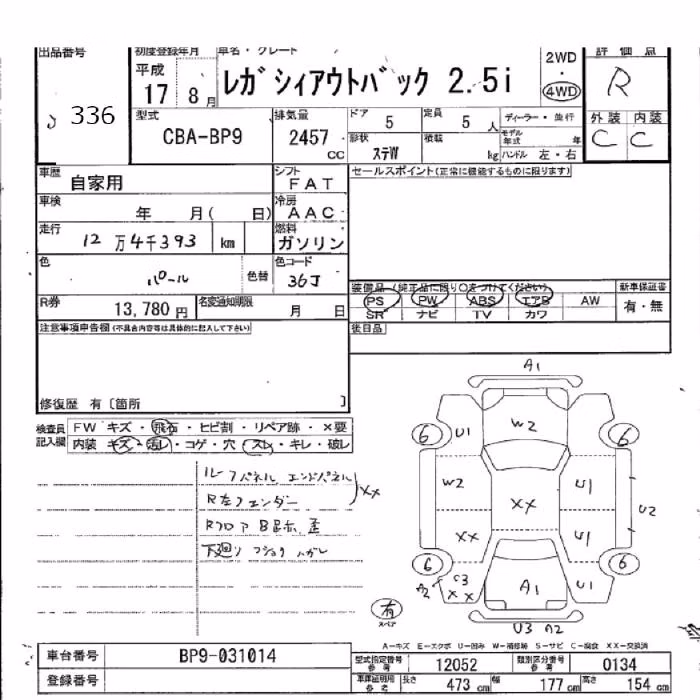 出品番号
336
初度登録年月
平成
17 8月
車名・グレード
レガシィアウトバック 2.5i
2WD
・
4WD
評価点
R
型式
CBA-BP9
排気量
2457
cc
ドア
5
定員
5 人
形状
ステW
積載
kg
ディーラー・並行
モデル年式 年
ハンドル 左・右
外装 内装
C C
車歴
自家用
シフト
FAT
車検
年 月( 日)
冷房
AAC
走行
12万4千393 km
燃料
ガソリン
色
パール
色替
色コード
36J
セールスポイント(正常に機能するものに限ります)
装備品(純正品に限り○をつけてください)
PS PW ABS エアB AW
SR ナビ TV カワ
新車保証書
有・無
R券
13,780円
名変通知期限
月 日
後日品
注意事項申告欄(不具合内容等は具体的に記入して下さい)
修復歴 有〔箇所 〕
検査員記入欄
FW キズ・飛石・ヒビ割・リペア跡・×要
内装 キズ・汚レ・コゲ・穴・スレ・キレ・破レ
ルーフパネル エンドパネル
R左フェンダー
XX
Rフロア
下廻り フショク ハガレ
有
スペア
A1
W2
6 U1 6
W2 U1
XX
U2
XX U1
6 6
A2 C3 XX
A1 U1
U3 A2
A-キズ E-エクボ U-凹み W-補修跡 S-サビ C-腐食 XX-交換済
車台番号
BP9-031014
登録番号
型式指定番号参考
12052
類別区分番号参考
0134
車庫証明用参考
長さ 473 cm
幅 177 cm
高さ 154 cm